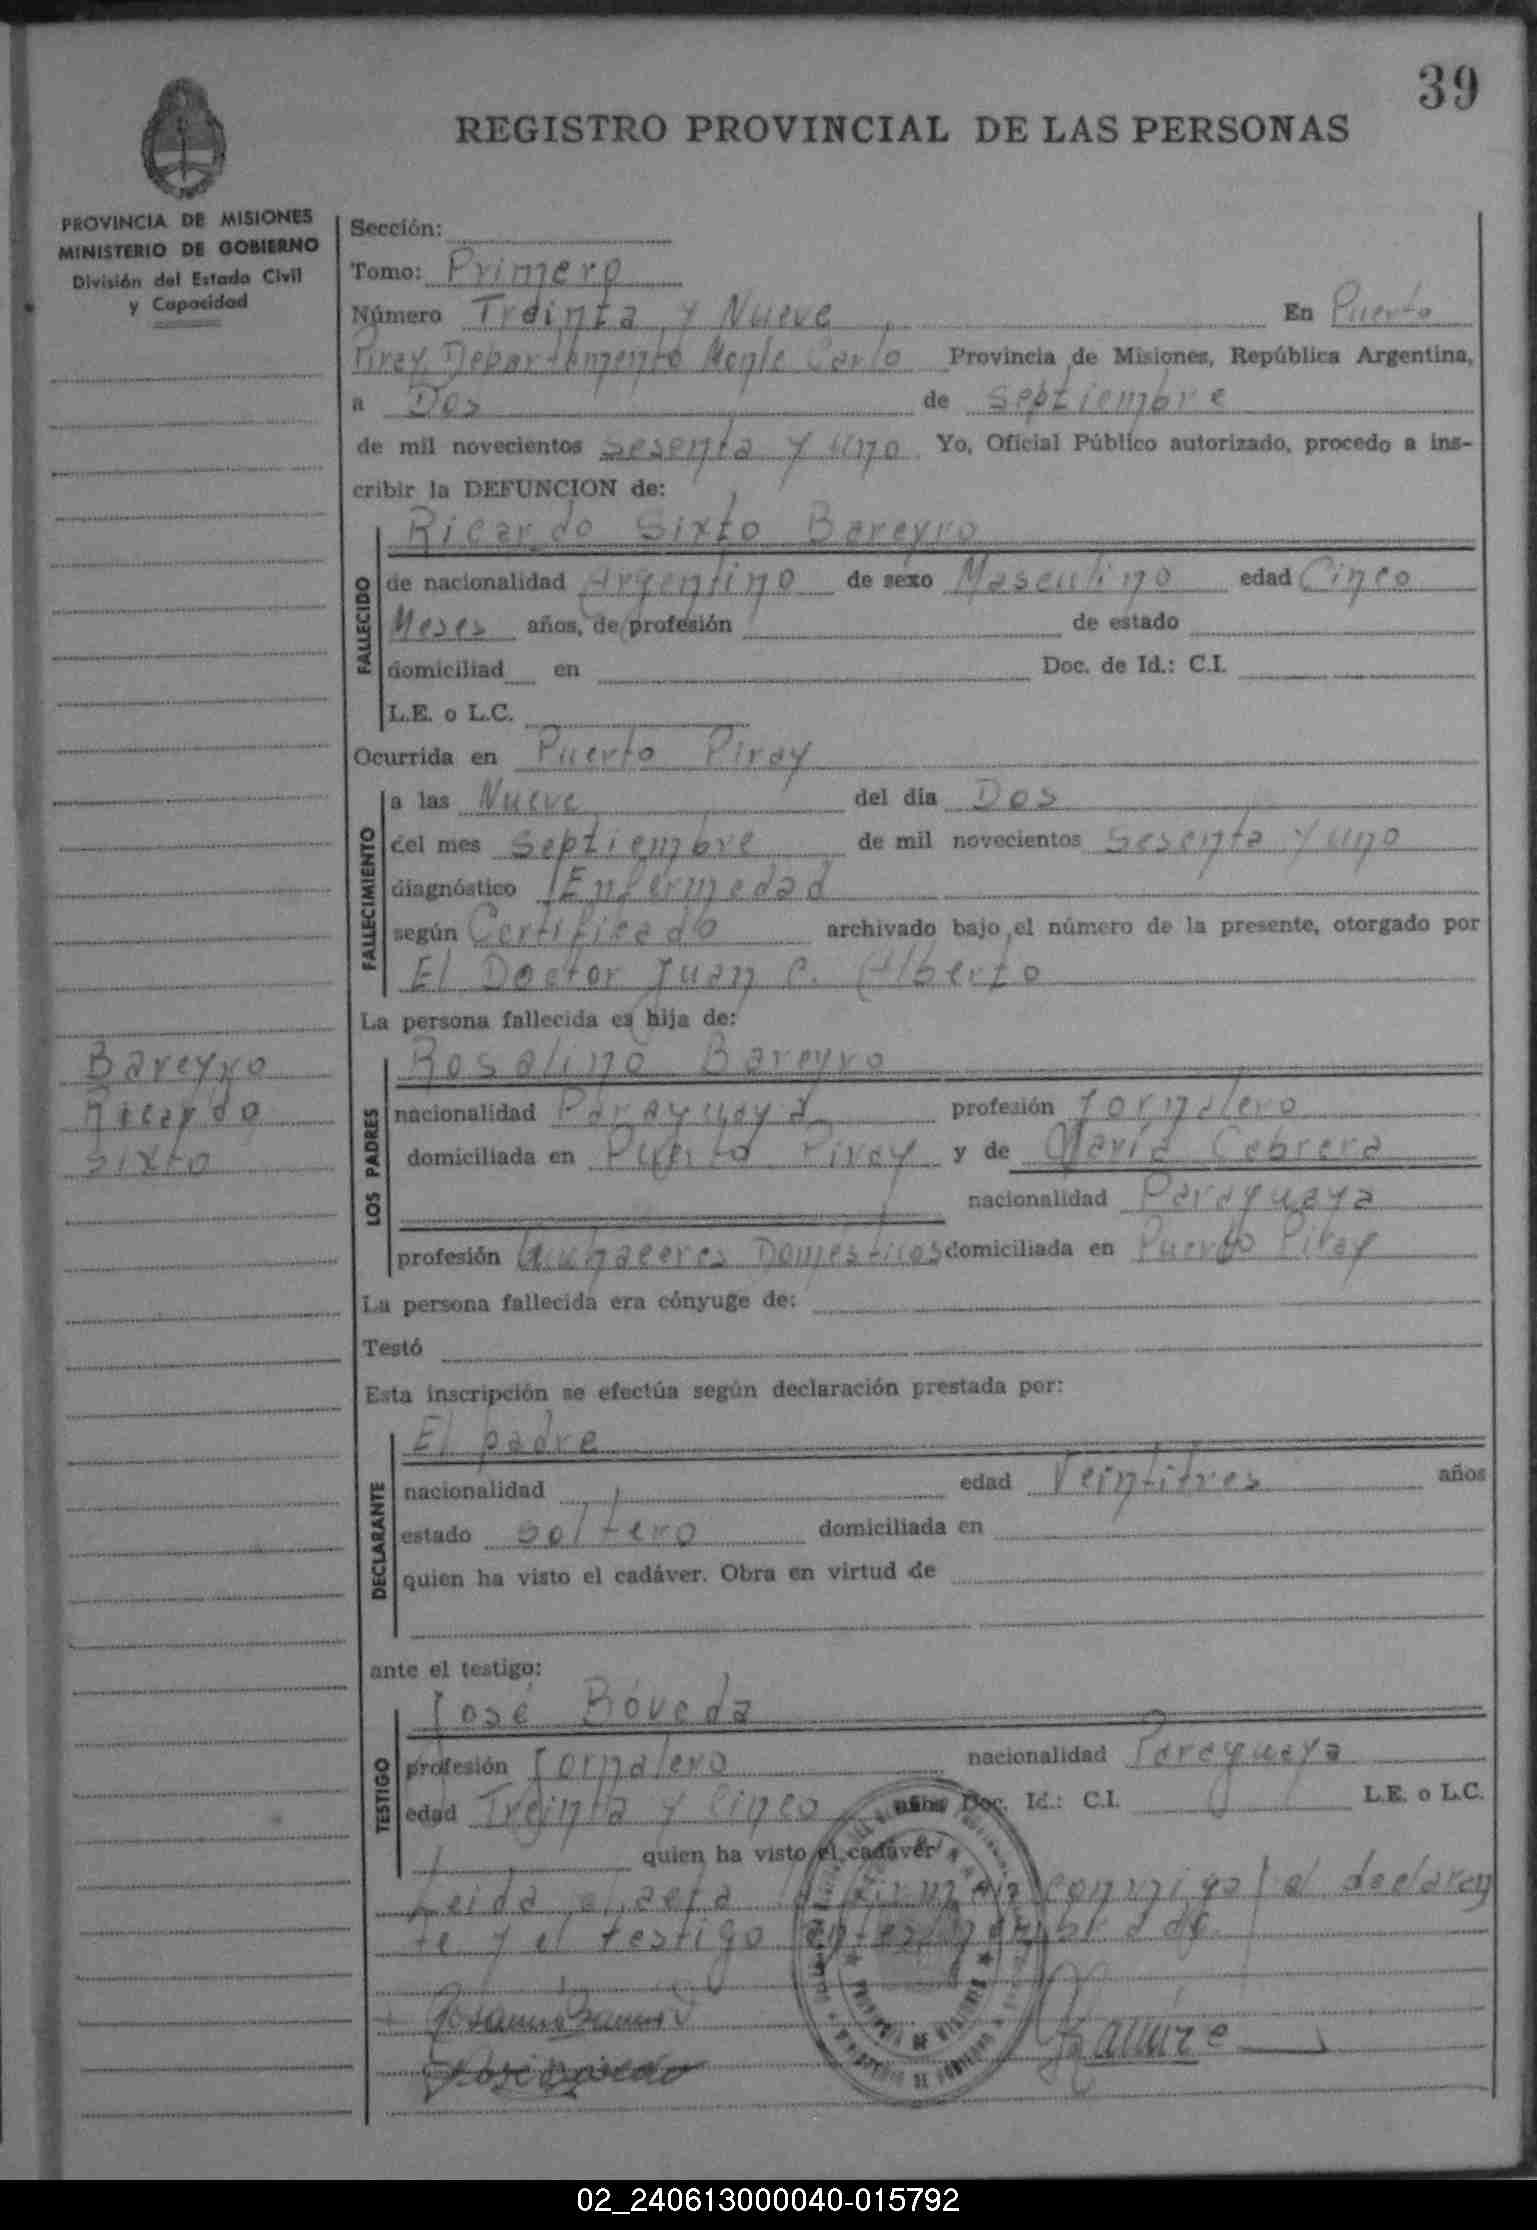 39
REGISTRO PROVINCIAL DE LAS PERSONAS
PROVINCIA DE MISIONES
MINISTERIO DE GOBIERNO
División del Estado Civil
y Capacidad
Sección:
Tomo: Primero
Número Treinta y Nueve En Puerto
Piray Departamento Monte Carlo Provincia de Misiones, República Argentina,
a Dos de Septiembre
de mil novecientos Sesenta y uno. Yo, Oficial Público autorizado, procedo a ins-
cribir la DEFUNCION de:
Ricardo Sixto Bareyro
FALLECIDO
de nacionalidad Argentino de sexo Masculino edad Cinco
Meses años, de profesión de estado
domiciliad en Doc. de Id.: C.I.
L.E. o L.C.
Ocurrida en Puerto Piray
FALLECIMIENTO
a las Nueve del día Dos
del mes Septiembre de mil novecientos Sesenta y uno
diagnóstico Enfermedad
según Certificado archivado bajo el número de la presente, otorgado por
El Doctor Juan C. Alberto
La persona fallecida es hija de:
Bareyro
Ricardo
Sixto
LOS PADRES
Rosalino Bareyro
nacionalidad Paraguaya profesión Jornalero
domiciliada en Puerto Piray y de María Cabrera
nacionalidad Paraguaya
profesión Quehaceres Domésticos domiciliada en Puerto Piray
La persona fallecida era cónyuge de:
Testó
Esta inscripción se efectúa según declaración prestada por:
DECLARANTE
El padre
nacionalidad edad Veintitres años
estado Soltero domiciliada en
quien ha visto el cadáver. Obra en virtud de
ante el testigo:
TESTIGO
José Bóveda
profesión Jornalero nacionalidad Paraguaya
edad Treinta y Cinco años Doc. Id.: C.I. L.E. o L.C.
quien ha visto el cadáver
Leida el acta la firman conmigo el declaran
te y el testigo
PROVINCIA DE MISIONES
02_240613000040-015792